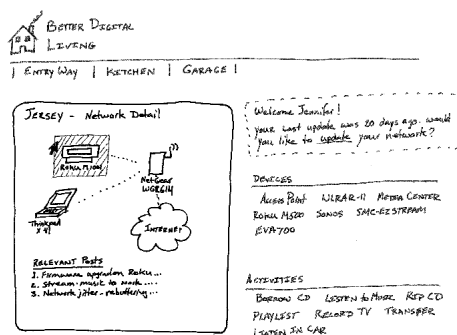 BETTER DIGITAL
LIVING
| ENTRY WAY | KITCHEN | GARAGE |
JERSEY - Network Detail
Roku
NetGear
WGR614
Thinkpad
INTERNET
RELEVANT Posts
1. Firmware upgrade on Roku...
2. Stream music to work....
3. Network jitter-rebuffering...
Welcome Jennifer!
your last update was 20 days ago. would
you like to update your network?
DEVICES
Access Point WLRAR-11 MEDIA CENTER
Roku M500 SONOS SMC-EZSTREAM
EVA700
ACTIVITIES
BORROW CD LISTEN to MUSIC RIP CD
PLAYLIST RECORD TV TRANSFER
LISTEN IN CAR